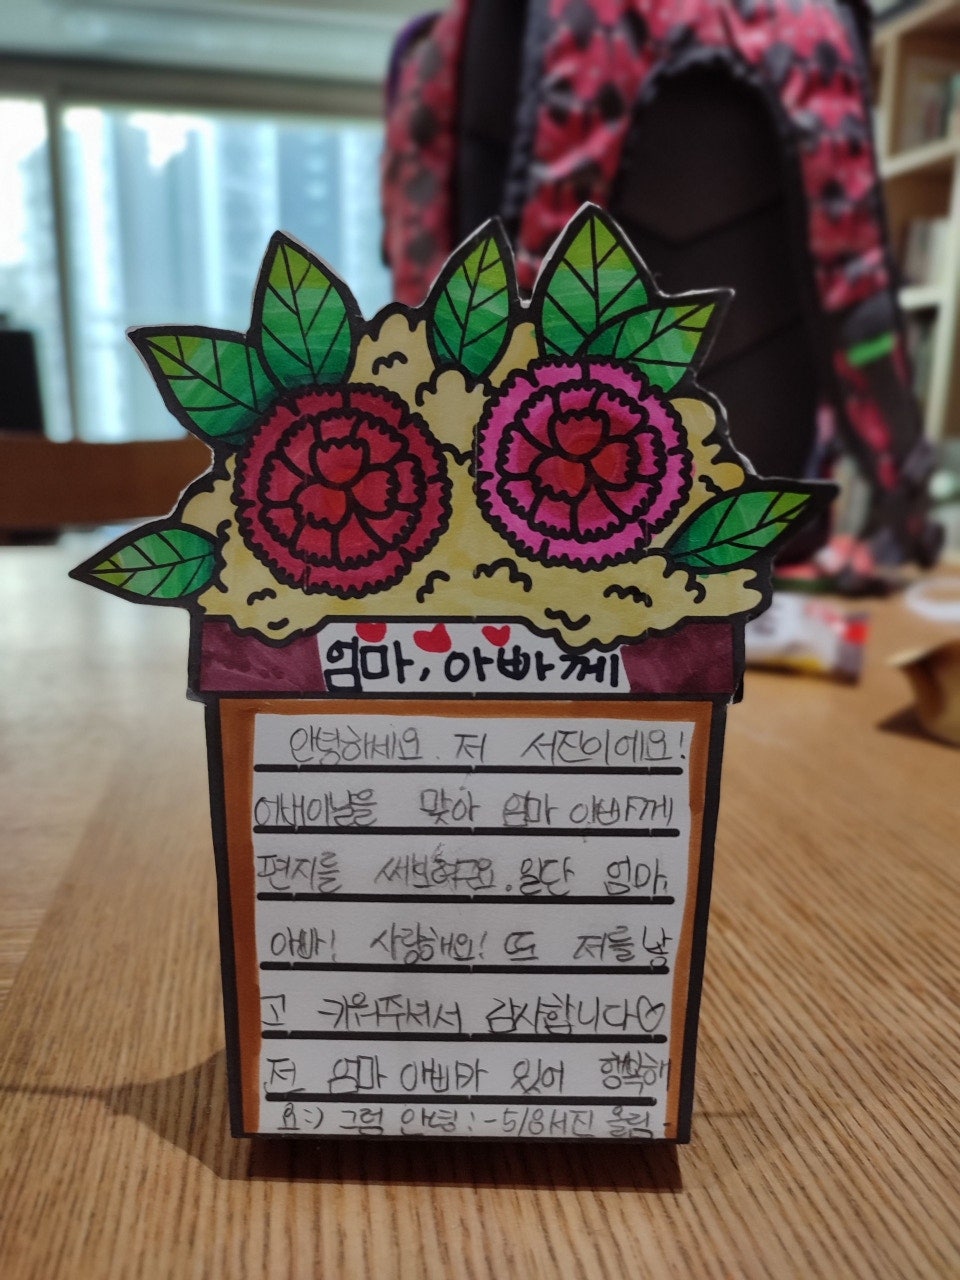 엄마, 아빠께
안녕하세요. 저 서진이에요!
어버이날을 맞아 엄마 아빠께
편지를 써보려구요. 일단 엄마,
아빠! 사랑해요! 또 저를 낳
고 키워주셔서 감사합니다♡
전 엄마 아빠가 있어 행복해
요:) 그럼 안녕! -5/8 서진 올림-